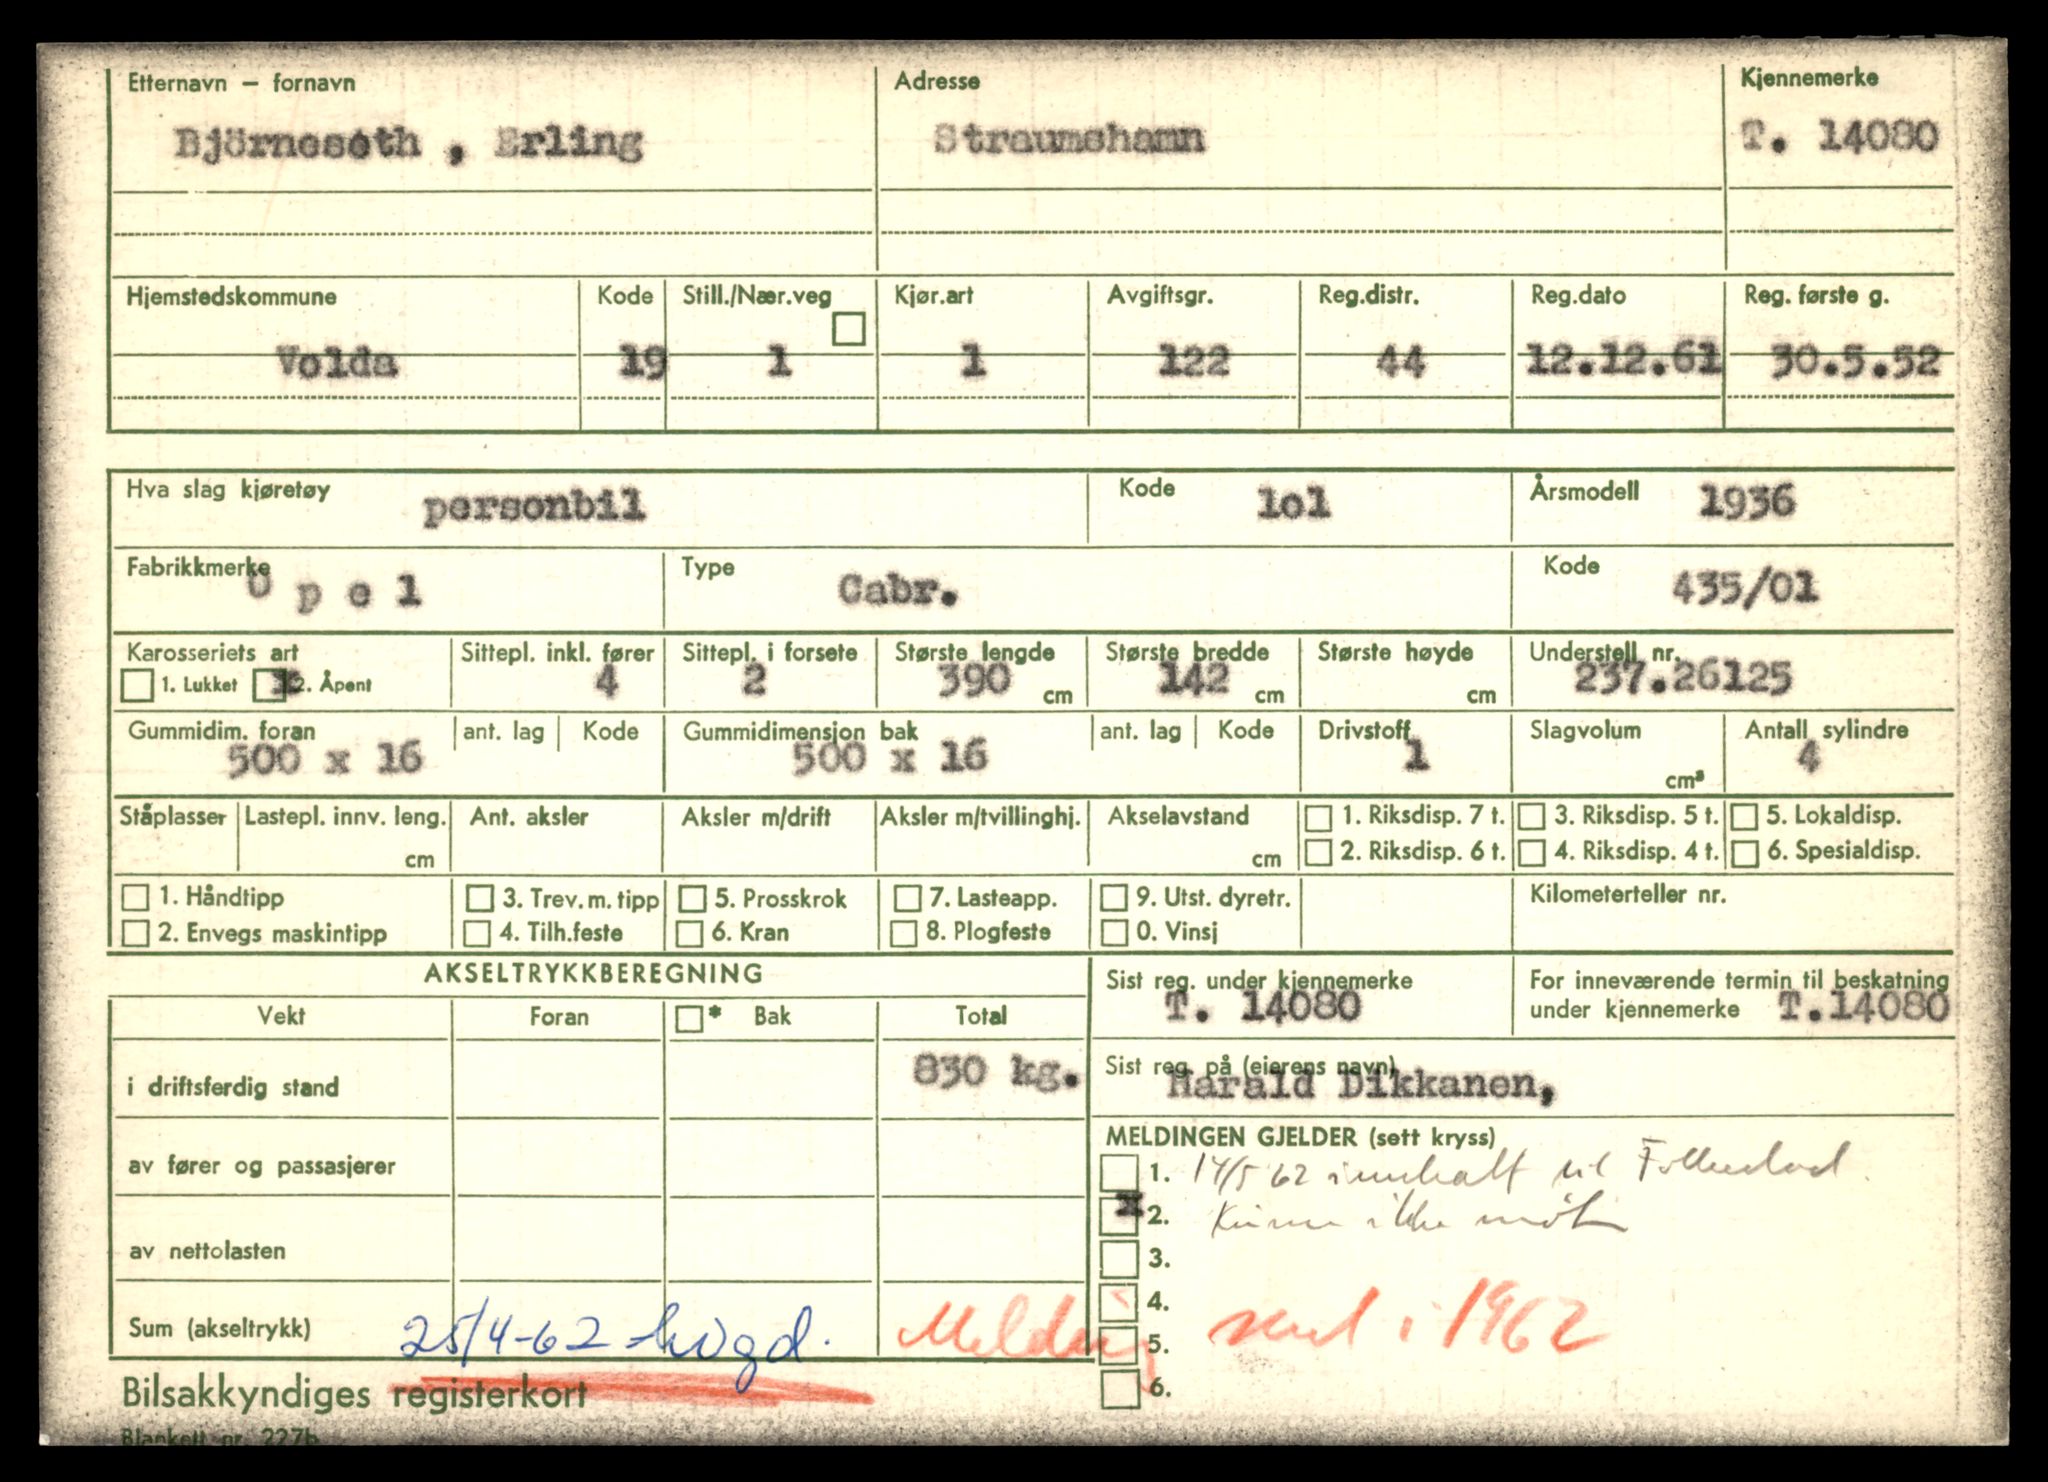 Etternavn – fornavn Adresse Kjennemerke
Björneseth , Erling Straumshamn T. 14080
Hjemstedskommune Kode Still./Nær.veg Kjør.art Avgiftsgr. Reg.distr. Reg.dato Reg. første g.
Volda 19 1 1 122 44 12.12.61 30.5.52
Hva slag kjøretøy personbil Kode lol Årsmodell 1936
Fabrikkmerke O p e l Type Cabr. Kode 435/01
Karosseriets art Sittepl. inkl. fører Sittepl. i forsete Største lengde Største bredde Største høyde Understell nr.
1. Lukket x 2. Åpent 4 2 390 cm 142 cm cm 237.26125
Gummidim. foran ant. lag Kode Gummidimensjon bak ant. lag Kode Drivstoff Slagvolum Antall sylindre
500 x 16 500 x 16 1 cm³ 4
Ståplasser Lastepl. innv. leng. Ant. aksler Aksler m/drift Aksler m/tvillinghj. Akselavstand 1. Riksdisp. 7 t. 3. Riksdisp. 5 t. 5. Lokaldisp.
cm cm 2. Riksdisp. 6 t. 4. Riksdisp. 4 t. 6. Spesialdisp.
1. Håndtipp 3. Trev. m. tipp 5. Prosskrok 7. Lasteapp. 9. Utst. dyretr. Kilometerteller nr.
2. Envegs maskintipp 4. Tilh.feste 6. Kran 8. Plogfeste 0. Vinsj
AKSELTRYKKBEREGNING
Vekt Foran * Bak Total
i driftsferdig stand 830 kg.
av fører og passasjerer
av nettolasten
Sum (akseltrykk) 25/4-62
Sist reg. under kjennemerke For inneværende termin til beskatning
T. 14080 under kjennemerke T.14080
Sist reg. på (eierens navn)
Harald Dikkanen,
MELDINGEN GJELDER (sett kryss)
1. 14/5 62 innkalt til Folkestad.
x 2. Kunne ikke møte
3.
4.
Melding sent i 1962
5.
6.
Bilsakkyndiges registerkort
Blankett nr. 227b